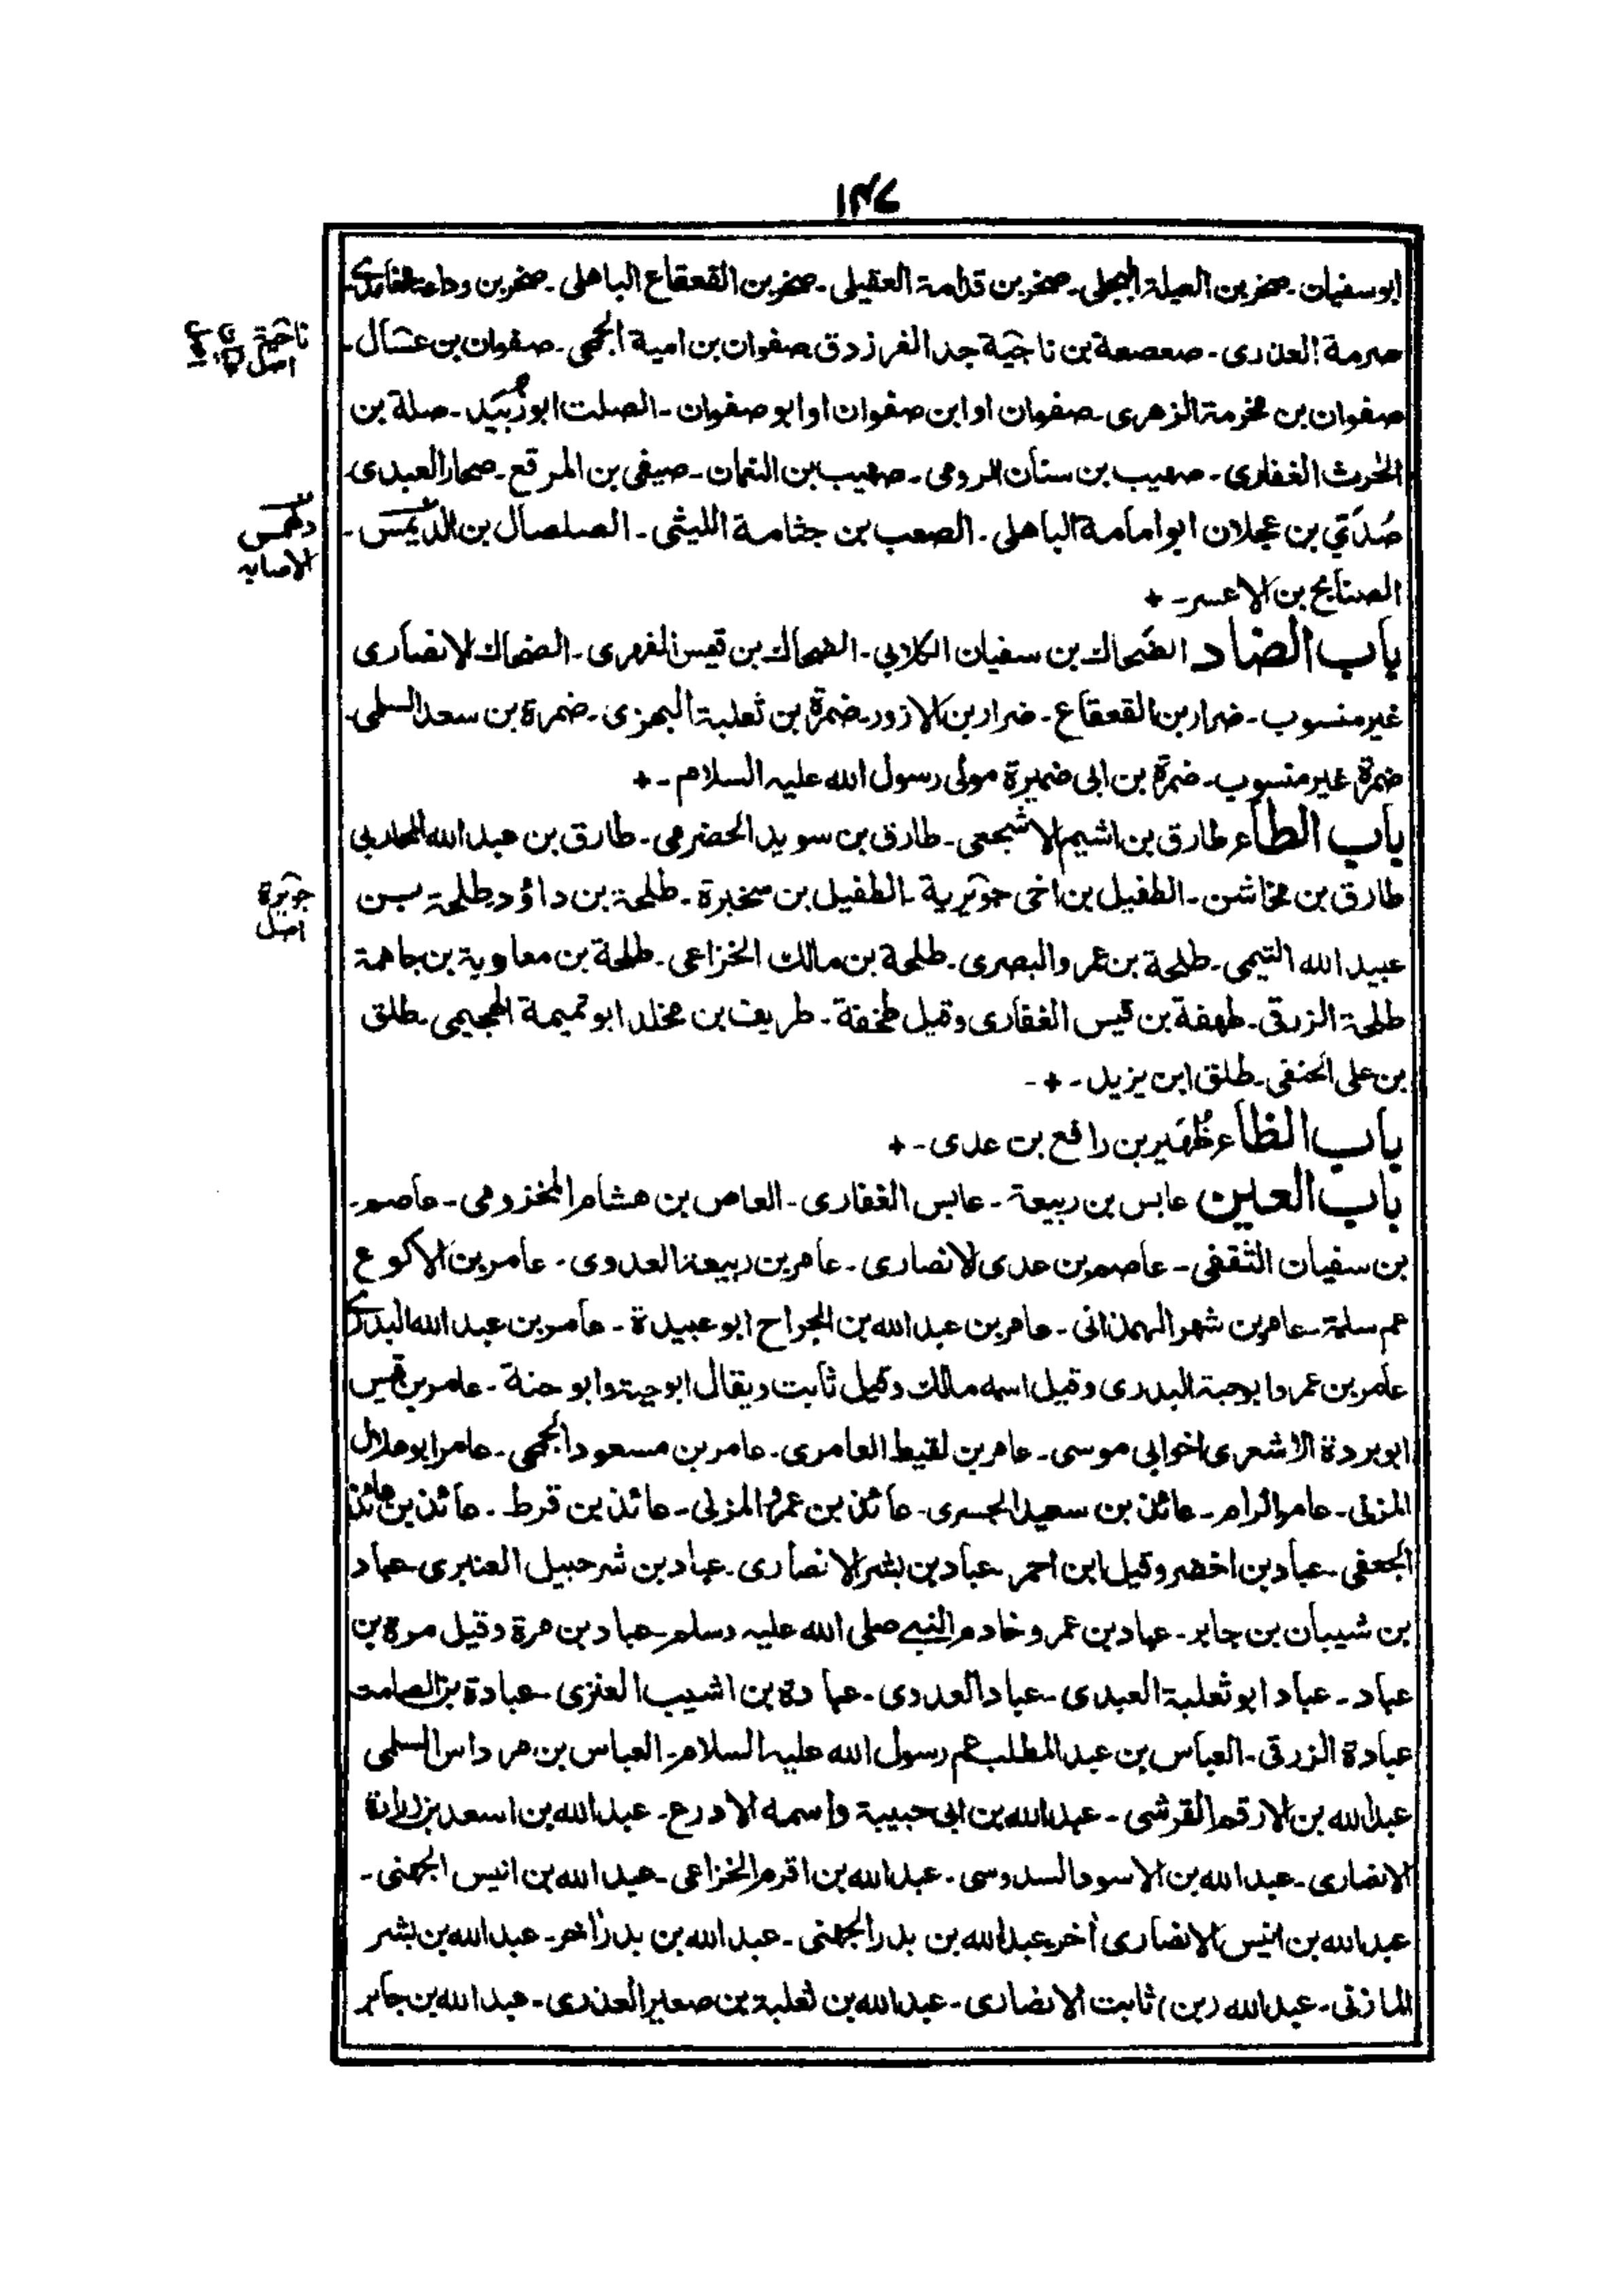 ۱۴۷
ابو سفيان - صخر بن العيلة البجلی - صخر بن قدامة العقيلی - صخر بن القعقاع الباهلی - صخر بن وداعة الغامدی
صرمة العذری - صعصعة بن ناجية جد الفرزدق صفوان بن امية الجمحی - صفوان بن عسال -
صفوان بن مخرمة الزهری - صفوان او ابن صفوان او ابو صفوان - الصلت ابو زبيد - صلة بن
الحرث الغفاری - صهيب بن سنان الرومی - صهيب بن النعمان - صيفی بن المرقع - صحار العبدی
صُدَيّ بن عجلان ابو امامة الباهلی - الصعب بن جثامة الليثی - الصلصال بن الدلهمس -
الصنابح بن الاعسر - +
باب الضاد الضحاك بن سفيان الكلابی - الضحاك بن قيس الفهری - الضحاك الانصاری
غير منسوب - ضرار بن القعقاع - ضرار بن الازور - ضمرة بن ثعلبة البهزی - ضمرة بن سعد السلمی -
ضمرة غير منسوب - ضمرة بن ابی ضميرة مولی رسول الله عليه السلام - +
باب الطاء طارق بن اشيم الاشجعی - طارق بن سويد الحضرمی - طارق بن عبد الله المحاربی
طارق بن مخاشن - الطفيل بن اخی جويرية - الطفيل بن سخبرة - طلحة بن داؤد - طلحة بن
عبيد الله التيمی - طلحة بن عمرو البصری - طلحة بن مالك الخزاعی - طلحة بن معاوية بن جاهمة
طلحة الزرقی - طهفة بن قيس الغفاری وقيل طخفة - طريف بن مخلد ابو تميمة الهجيمی - طلق
بن علی الحنفی - طلق ابن يزيد - + -
باب الظاء ظُهَير بن رافع بن عدی - +
باب العين عابس بن ربيعة - عابس الغفاری - العاص بن هشام المخزومی - عاصم -
بن سفيان الثقفی - عاصم بن عدی الانصاری - عامر بن ربيعة العدوی - عامر بن الاكوع
عم سلمة - عامر بن شهر الهمذانی - عامر بن عبد الله بن الجراح ابو عبيدة - عامر بن عبد الله البدری
عامر بن عمرو ابو حبة البدری وقيل اسمه مالك وقيل ثابت ويقال ابو حية وابو حنة - عامر بن قيس
ابو بردة الاشعری اخو ابی موسی - عامر بن لقيط العامری - عامر بن مسعود الجمحی - عامر ابو هلال
المزنی - عامر الرام - عائذ بن سعيد الجسری - عائذ بن عمرو المزنی - عائذ بن قرط - عائذ بن عائذ
الجعفی - عباد بن اخضر وقيل ابن احمر - عباد بن بشر الانصاری - عباد بن شرحبيل العنبری - عباد
بن شيبان بن جابر - عباد بن عمرو خادم النبی صلی الله عليه وسلم - عباد بن مرة وقيل مرة بن
عباد - عباد ابو ثعلبة العبدی - عباد العدوی - عبادة بن اشيب العنزی - عبادة بن الصامت
عبادة الزرقی - العباس بن عبد المطلب عم رسول الله عليه السلام - العباس بن مرداس السلمی
عبد الله بن الارقم القرشی - عبد الله بن ابی حبيبة واسمه الادرع - عبد الله بن اسعد بن زرارة
الانصاری - عبد الله بن الاسود السدوسی - عبد الله بن اقرم الخزاعی - عبد الله بن انيس الجهنی -
عبد الله بن انيس الانصاری أخر - عبد الله بن بدر الجهنی - عبد الله بن بدر أخر - عبد الله بن بشر
المازنی - عبد الله (بن) ثابت الانصاری - عبد الله بن ثعلبة بن صعير العذری - عبد الله بن جابر
ناجية
اصل
دلهمس
الاصابه
جويرة
اصل